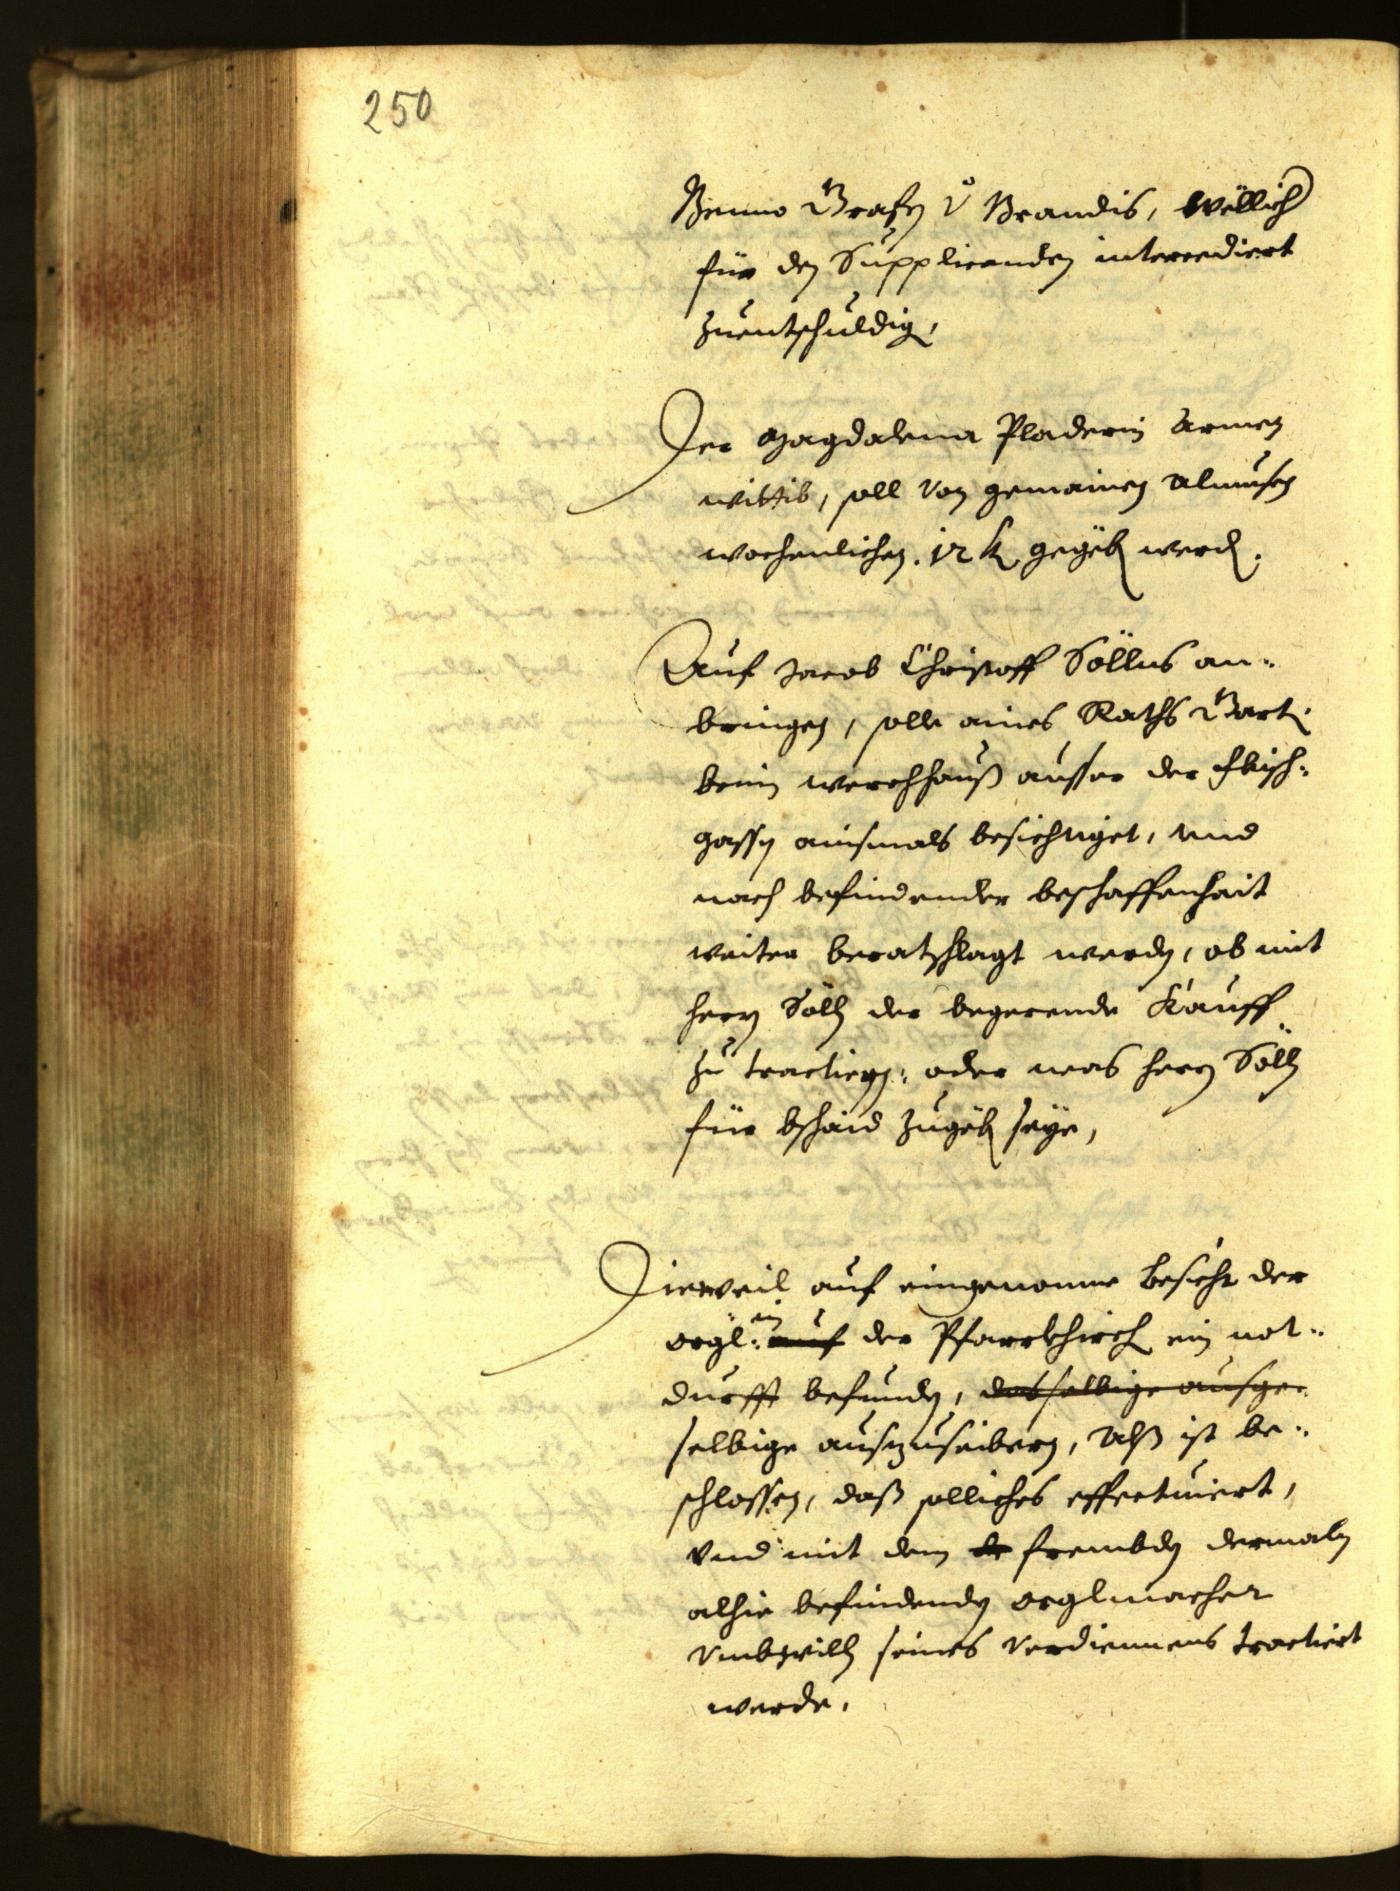 250
Benno Grafen v Brandis, wöllich
für den Supplicanden intercediert
zuentschuldigen,
Der Magdalena Pladerin armen
wittib, soll von gemainen Almusen
wochenlichen. 12 k gegeben werden.
Auf Jacob Christoff Söllns an-
bringen, solle aines Raths Gart
beim werchhauß ausser der Fleisch-
gassen ainsmals besichtiget, und
nach befindender beschaffenhait
weiter beratschlagt werden, ob mit
herrn Sölln der begerende Kauff
zu tractieren: oder was herrn Sölln
für bschaid zugeben seye,
Dieweil auf eingenomne besicht der
orgl: in auf der Pfarrkhirchen ein not-
durfft befunden, dasselbige ausge-
selbige auszuseibern, Alß ist be-
schlossen, daß solliches effectuiert,
vnd mit dem frembden dermaln
alhie befindenden orglmacher
vmbwilln seines verdiennens tractiert
werde.